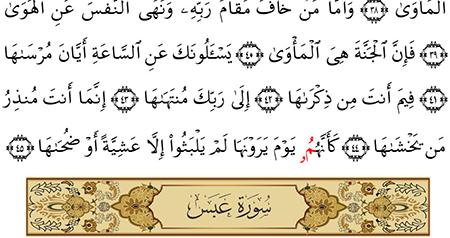 ٱلْمَأْوَىٰ ﴿٣٨﴾ وَأَمَّا مَنْ خَافَ مَقَامَ رَبِّهِۦ وَنَهَى ٱلنَّفْسَ عَنِ ٱلْهَوَىٰ
﴿٣٩﴾ فَإِنَّ ٱلْجَنَّةَ هِىَ ٱلْمَأْوَىٰ ﴿٤٠﴾ يَسْـَٔلُونَكَ عَنِ ٱلسَّاعَةِ أَيَّانَ مُرْسَىٰهَا
﴿٤١﴾ فِيمَ أَنتَ مِن ذِكْرَىٰهَا ﴿٤٢﴾ إِلَىٰ رَبِّكَ مُنتَهَىٰهَا ﴿٤٣﴾ إِنَّمَا أَنتَ مُنذِرُ
مَن يَخْشَىٰهَا ﴿٤٤﴾ كَأَنَّهُمُۥ يَوْمَ يَرَوْنَهَا لَمْ يَلْبَثُوٓا۟ إِلَّا عَشِيَّةً أَوْ ضُحَىٰهَا ﴿٤٥﴾
سُورَةُ عَبَسَ